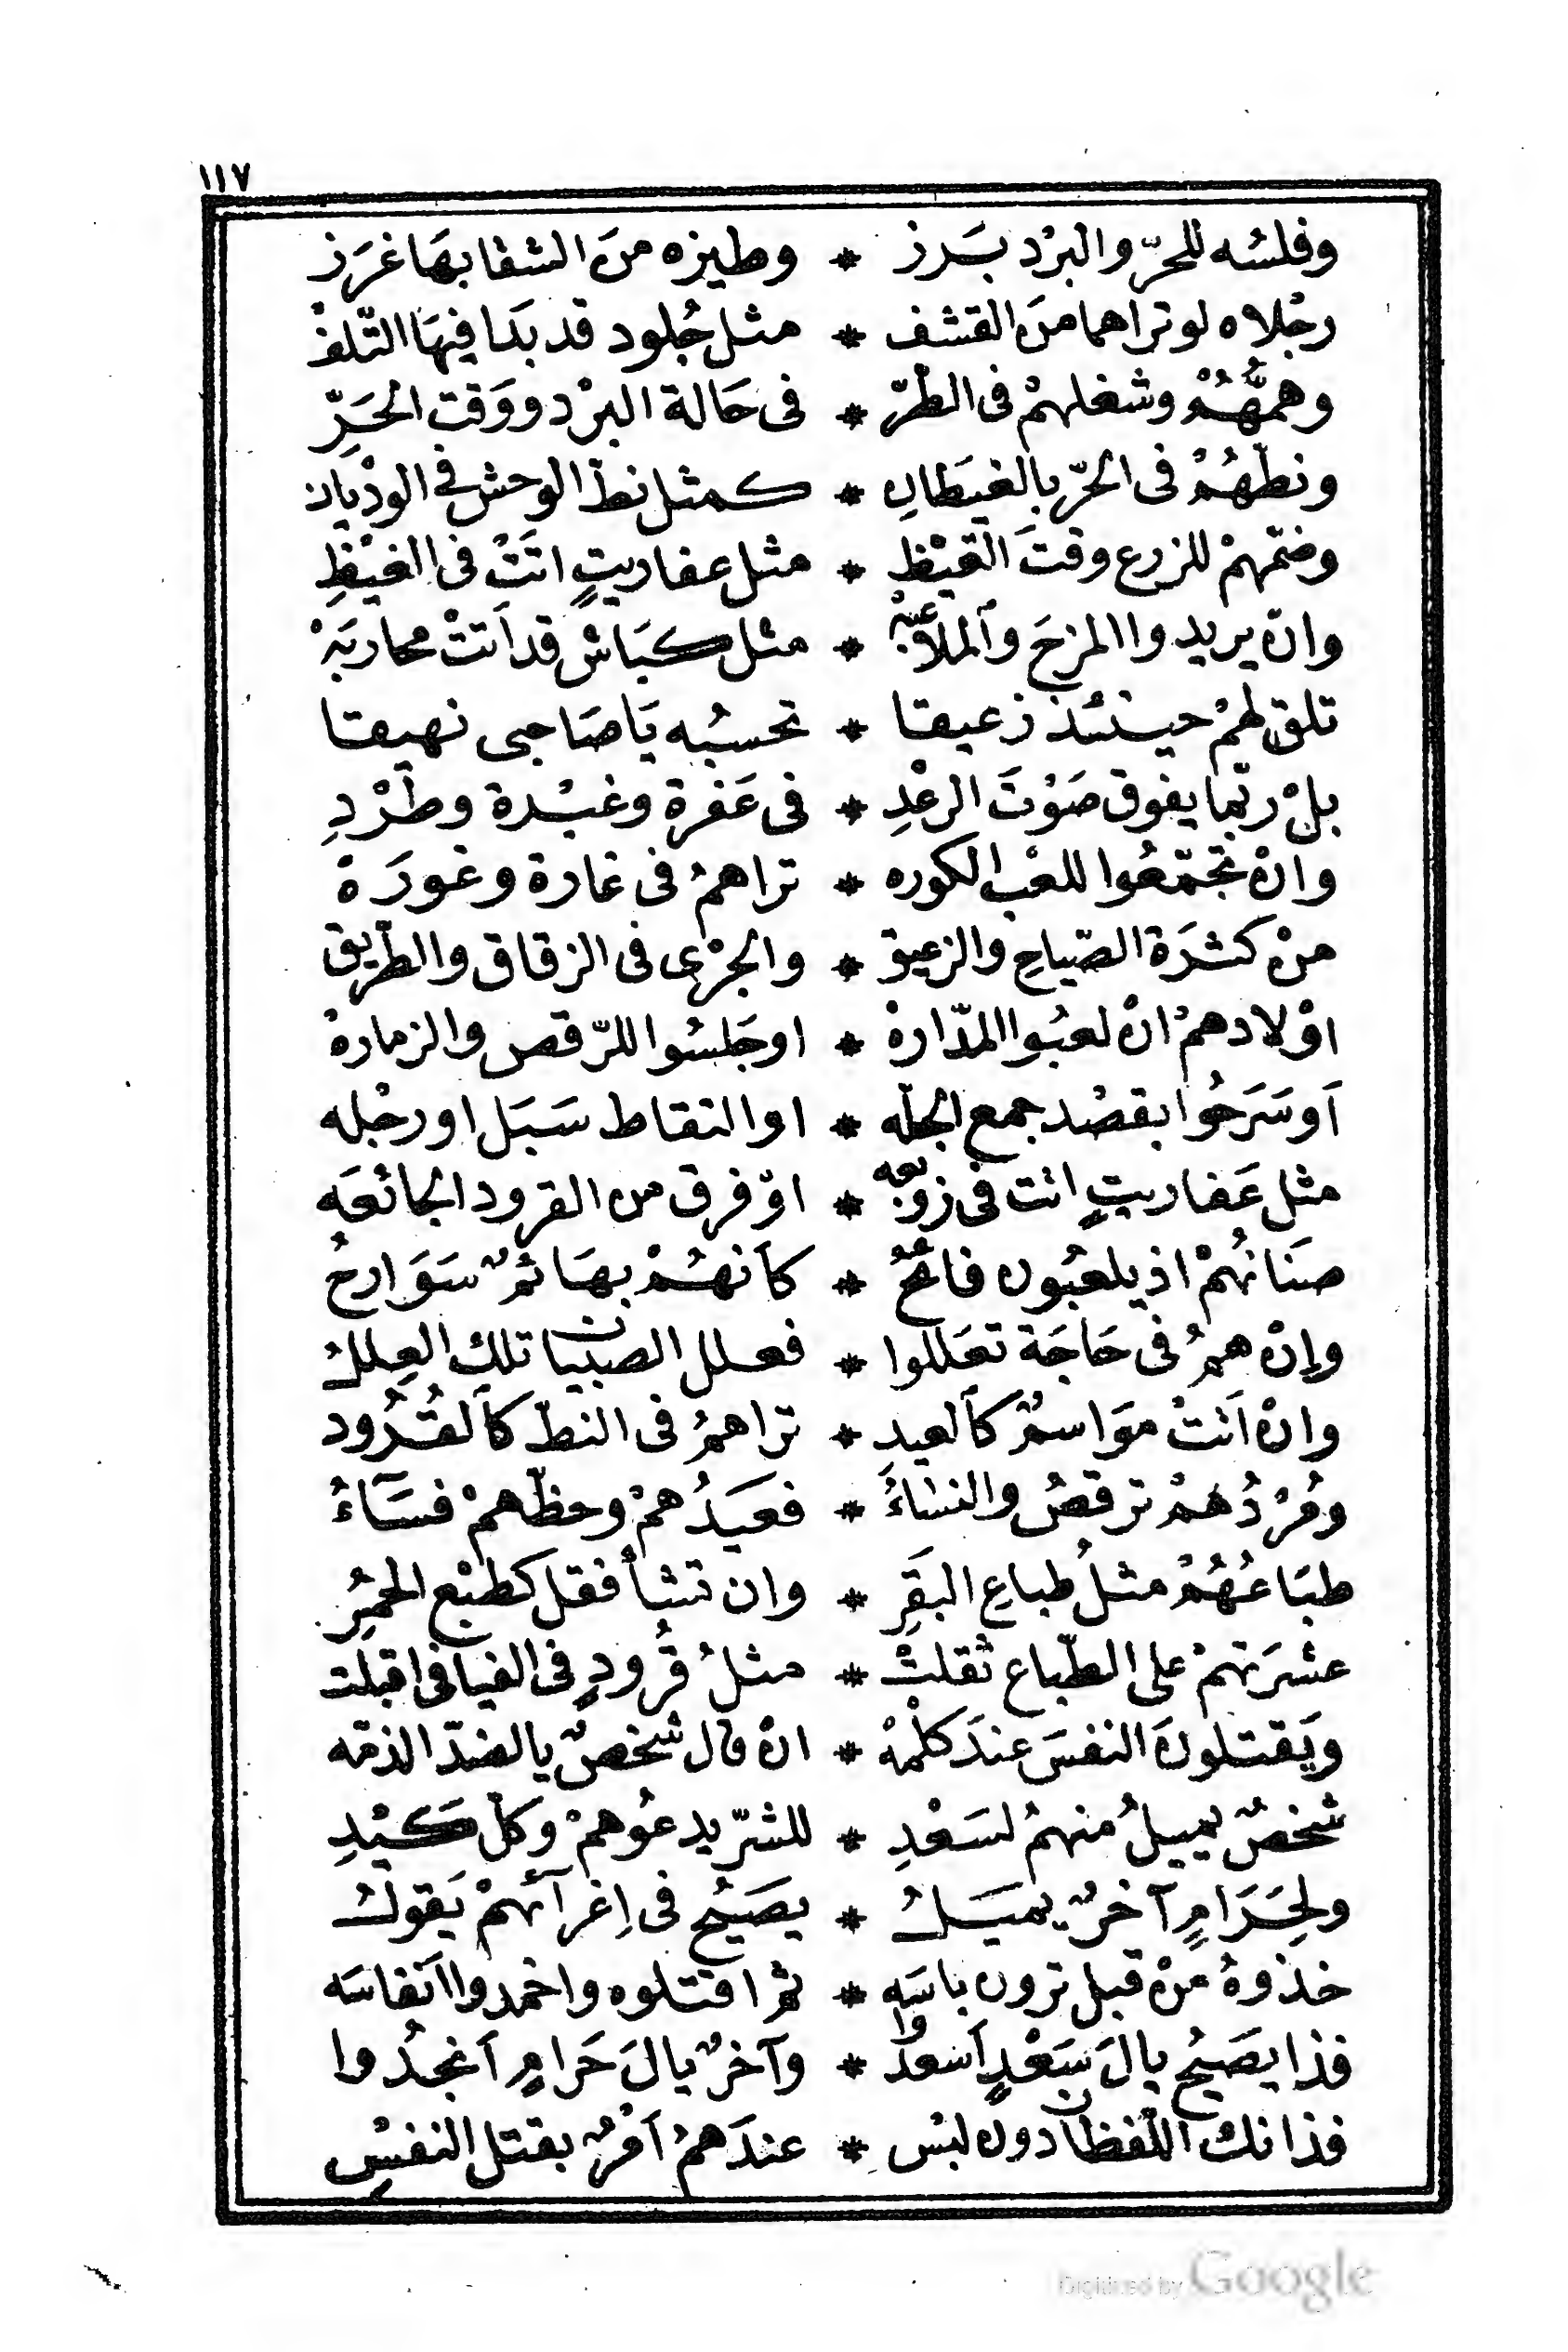 ١١٧
وفلسُه للحرّ والبرْد بَرز * وطيزه منَ الشقا بهَا غرَز
رجْلاه لو تراهما منَ القشف * مثل جُلود قد بَدا فيهَا التّلفْ
وهمُّهُمْ وشغلهمْ فى الطّرّ * فى حَالة البرْد ووَقت الحَرِّ
ونطّهُمْ فى الحرّ بالغيَطانِ * كمثل نطّ الوحش فى الودْيان
وضمّهمْ للزرع وقتَ القيْظِ * مثل عفاريتٍ اتَتْ فى الغيْظِ
وانْ يريدوا المزحَ والملأَبَهْ * مثل كبَاش قد اَتتْ محاربَهْ
تلق لهمْ حينئذ زعيقا * تحسبُه يَا صَاحبى نهيقا
بلْ ربّما يفوق صَوْتَ الرعْدِ * فى عَفرةٍ وغبْرة وطرْدِ
وانْ تجمّعُوا للعْب الكوره * تراهمُ فى غارة وغورَهْ
منْ كثرَة الصّياحِ والزعيق * والجرْى فى الزقاق والطّريق
اوْلادهمْ انْ لعبُوا المدّارهْ * او جَلسُوا للرّقص والزمارهْ
اَو سَرَحُوا بقصْد جمع الجلّه * او التقاط سَبَل او رجْله
مثل عَفاريتٍ اتت فى زوبعه * اوْ فرق من القرود الجائعَه
صنَانُهمْ اذ يلعبُون فائحُ * كأنهُمْ بهَائمٌ سَوَارحُ
وإنْ همُ فى حَاجَة تعَللوا * فعلل الصبْيان تلك العِللُ
وانْ اَتتْ موَاسمٌ كالعيدِ * تراهمُ فى النطّ كالقُرُود
ومُرْدُهمْ ترقصُ والنساءُ * فعيَدُهمْ وحظّهمْ فسَآءُ
طبَاعُهُمْ مثلُ طباعِ البقَرِ * وان تشأ فقل كطبْع الحمُرِ
عشرَتهمْ على الطّباع ثقلتْ * مثلُ قُرودٍ فى الفيافى اقبلت
وَيقتلونَ النفسَ عندَ كلْمهْ * انْ قال شخصٌ يا لضدّ الذمّه
شخصٌ يميلُ منهمُ لسَعْدِ * للشرّ يدعُوهمْ وكلّ كَيْدِ
ولحَرَامٍ آخرٌ يميَلُ * يصَيحُ فى اِغرآئهمْ يَقولُ
خذوهُ منْ قبل ترون باسَه * ثم اقتلوه واخمدوا اَنفاسَه
فذا يصَيحُ يالَ سَعْدٍ اَسعدُوا * وآخرٌ يالَ حَرامٍ اَنجدُوا
فذانك اللّفظان دون لبْس * عندَهمُ اَمْرٌ بقتل النفسْ
Digitized by Google